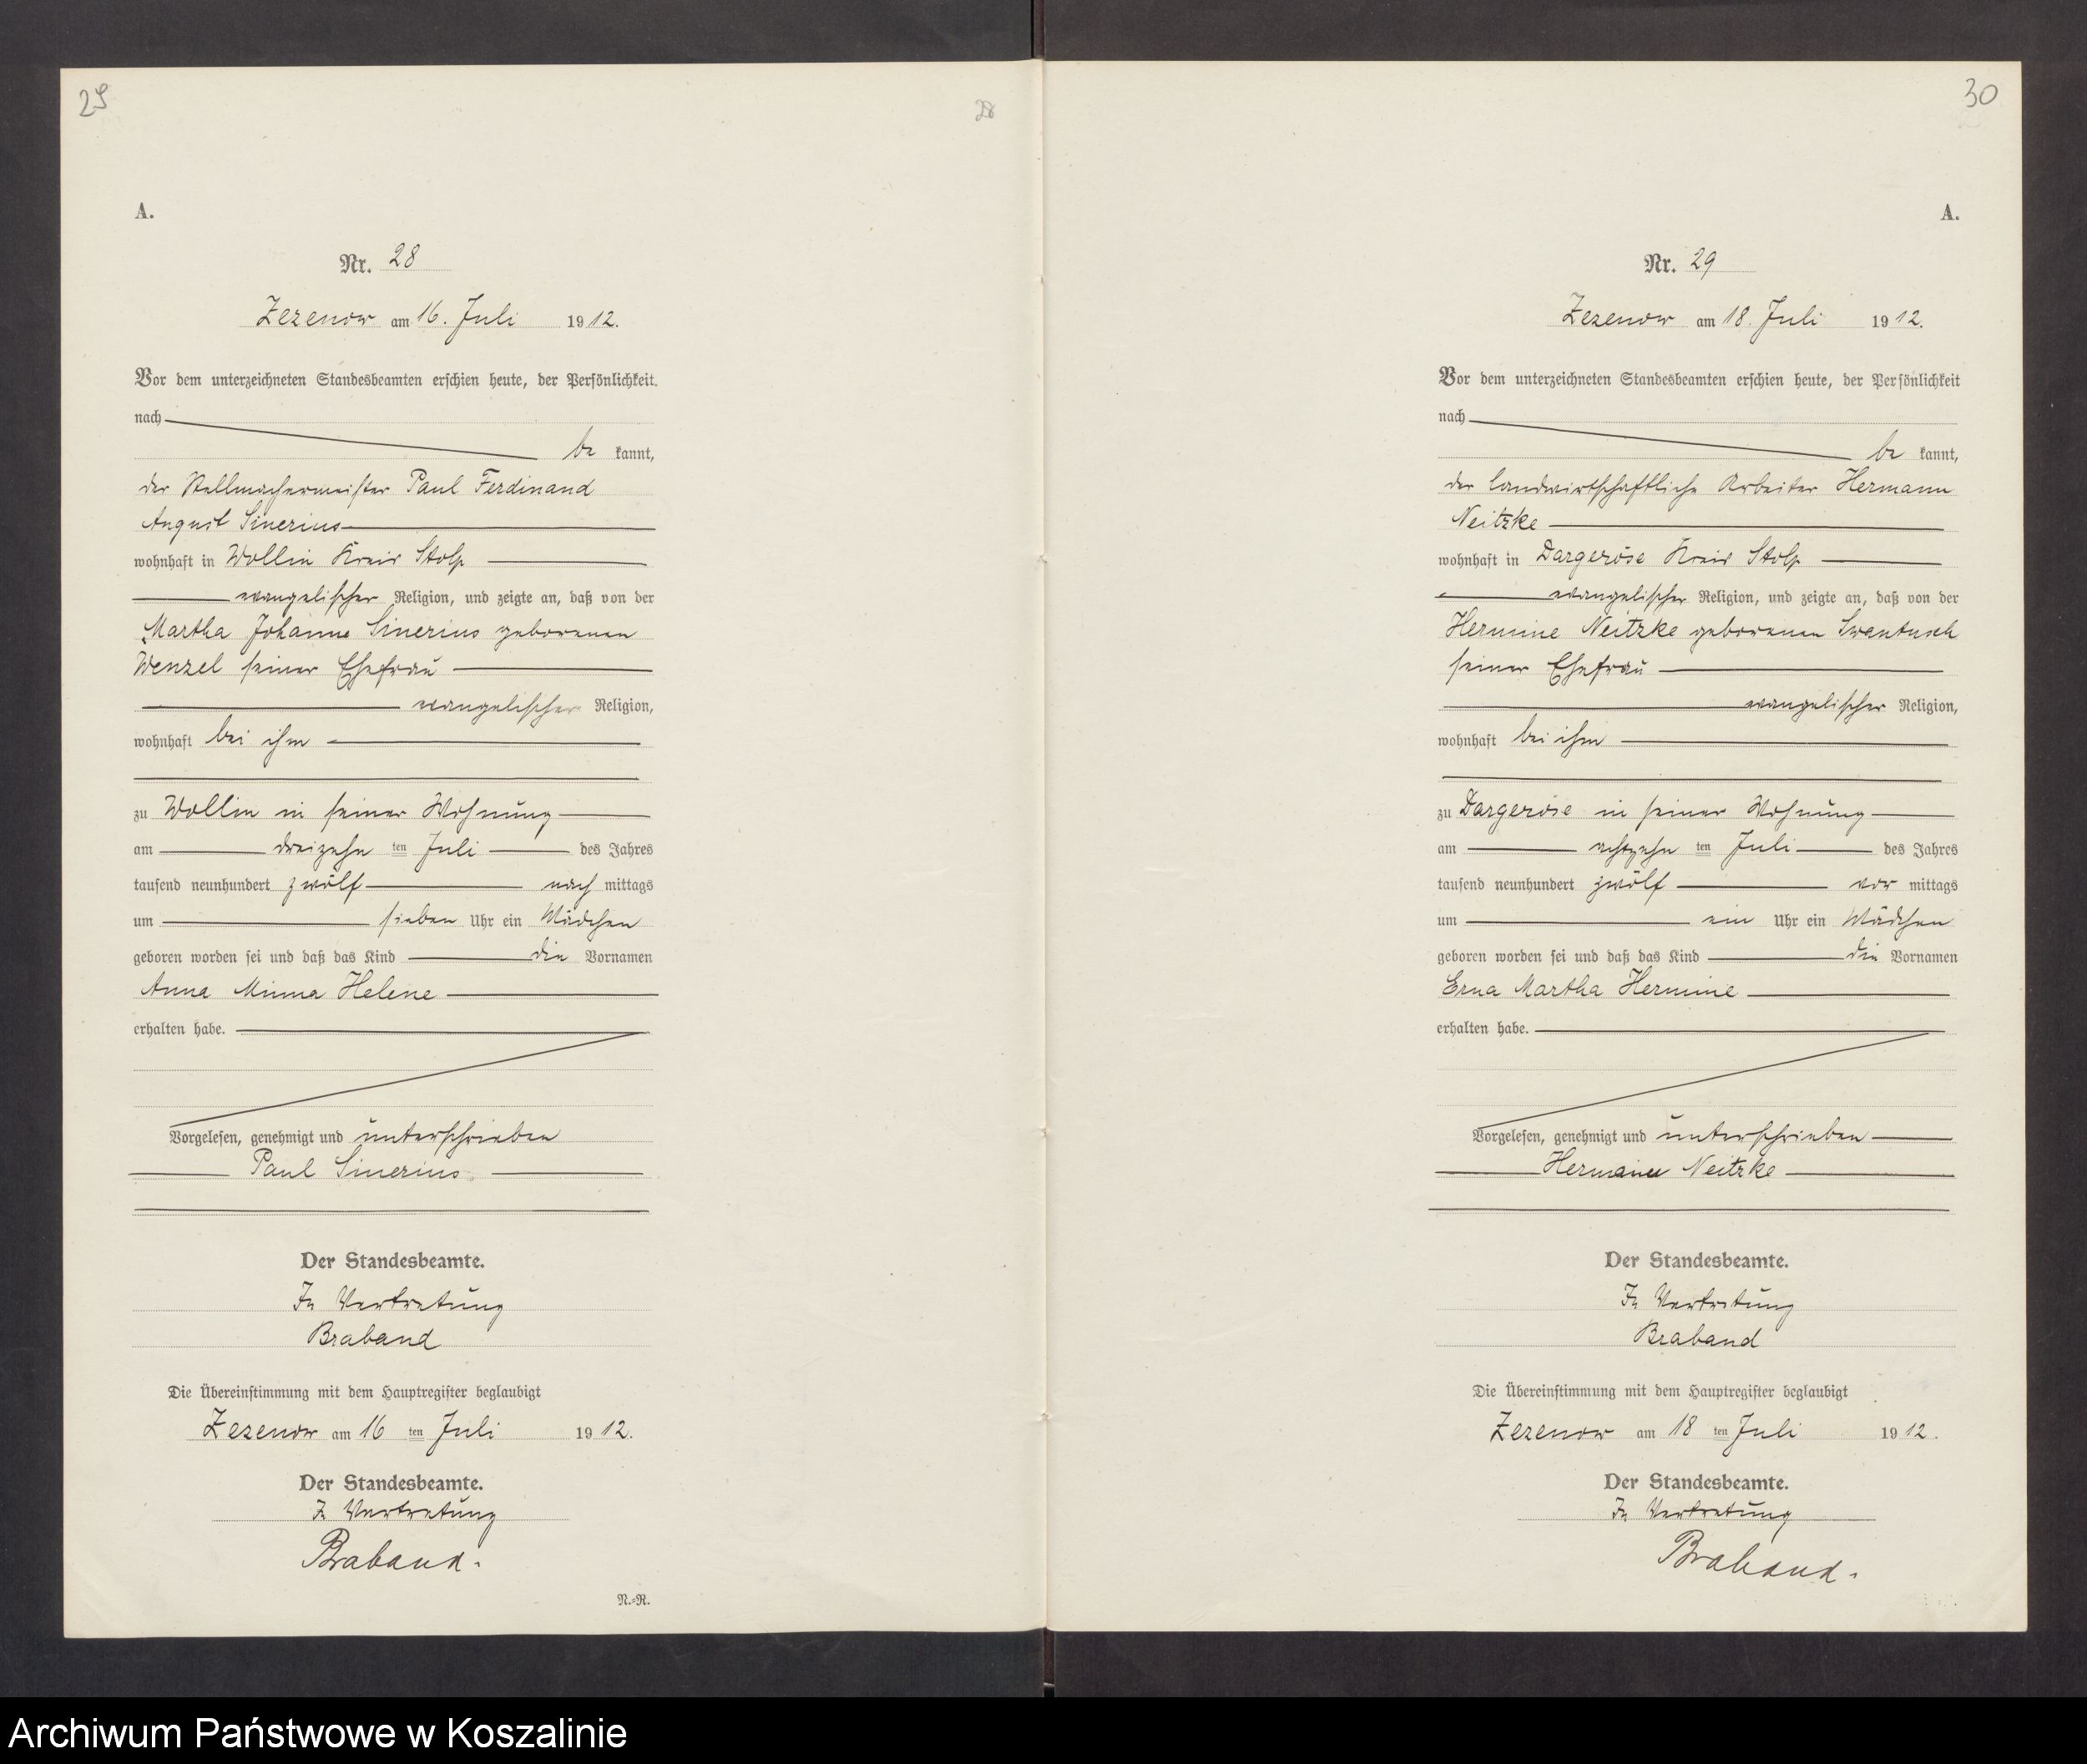 29
28
A.
Nr. 28
Zezenow am 16. Juli 1912.
Vor dem unterzeichneten Standesbeamten erschien heute, der Persönlichkeit
nach
be kannt,
der Stellmachermeister Paul Ferdinand
August Sinerius
wohnhaft in Wollin Kreis Stolp
evangelischer Religion, und zeigte an, daß von der
Martha Johanne Sinerius geborenen
Wenzel seiner Ehefrau
evangelischer Religion,
wohnhaft bei ihm
zu Wollin in seiner Wohnung
am dreizehn ten Juli des Jahres
tausend neunhundert zwölf nach mittags
um sieben Uhr ein Mädchen
geboren worden sei und daß das Kind die Vornamen
Anna Minna Helene
erhalten habe.
Vorgelesen, genehmigt und unterschrieben
Paul Sinerius
Der Standesbeamte.
In Vertretung
Braband
Die Übereinstimmung mit dem Hauptregister beglaubigt
Zezenow am 16 ten Juli 1912.
Der Standesbeamte.
In Vertretung
Braband.
N.=R.
30
A.
Nr. 29
Zezenow am 18. Juli 1912.
Vor dem unterzeichneten Standesbeamten erschien heute, der Persönlichkeit
nach
be kannt,
der landwirtschaftliche Arbeiter Hermann
Neitzke
wohnhaft in Dargeröse Kreis Stolp
evangelischer Religion, und zeigte an, daß von der
Hermine Neitzke geborenen Swantusch
seiner Ehefrau
evangelischer Religion,
wohnhaft bei ihm
zu Dargeröse in seiner Wohnung
am achtzehn ten Juli des Jahres
tausend neunhundert zwölf vor mittags
um ein Uhr ein Mädchen
geboren worden sei und daß das Kind die Vornamen
Erna Martha Hermine
erhalten habe.
Vorgelesen, genehmigt und unterschrieben
Hermann Neitzke
Der Standesbeamte.
In Vertretung
Braband
Die Übereinstimmung mit dem Hauptregister beglaubigt
Zezenow am 18 ten Juli 1912.
Der Standesbeamte.
In Vertretung
Braband.
Archiwum Państwowe w Koszalinie